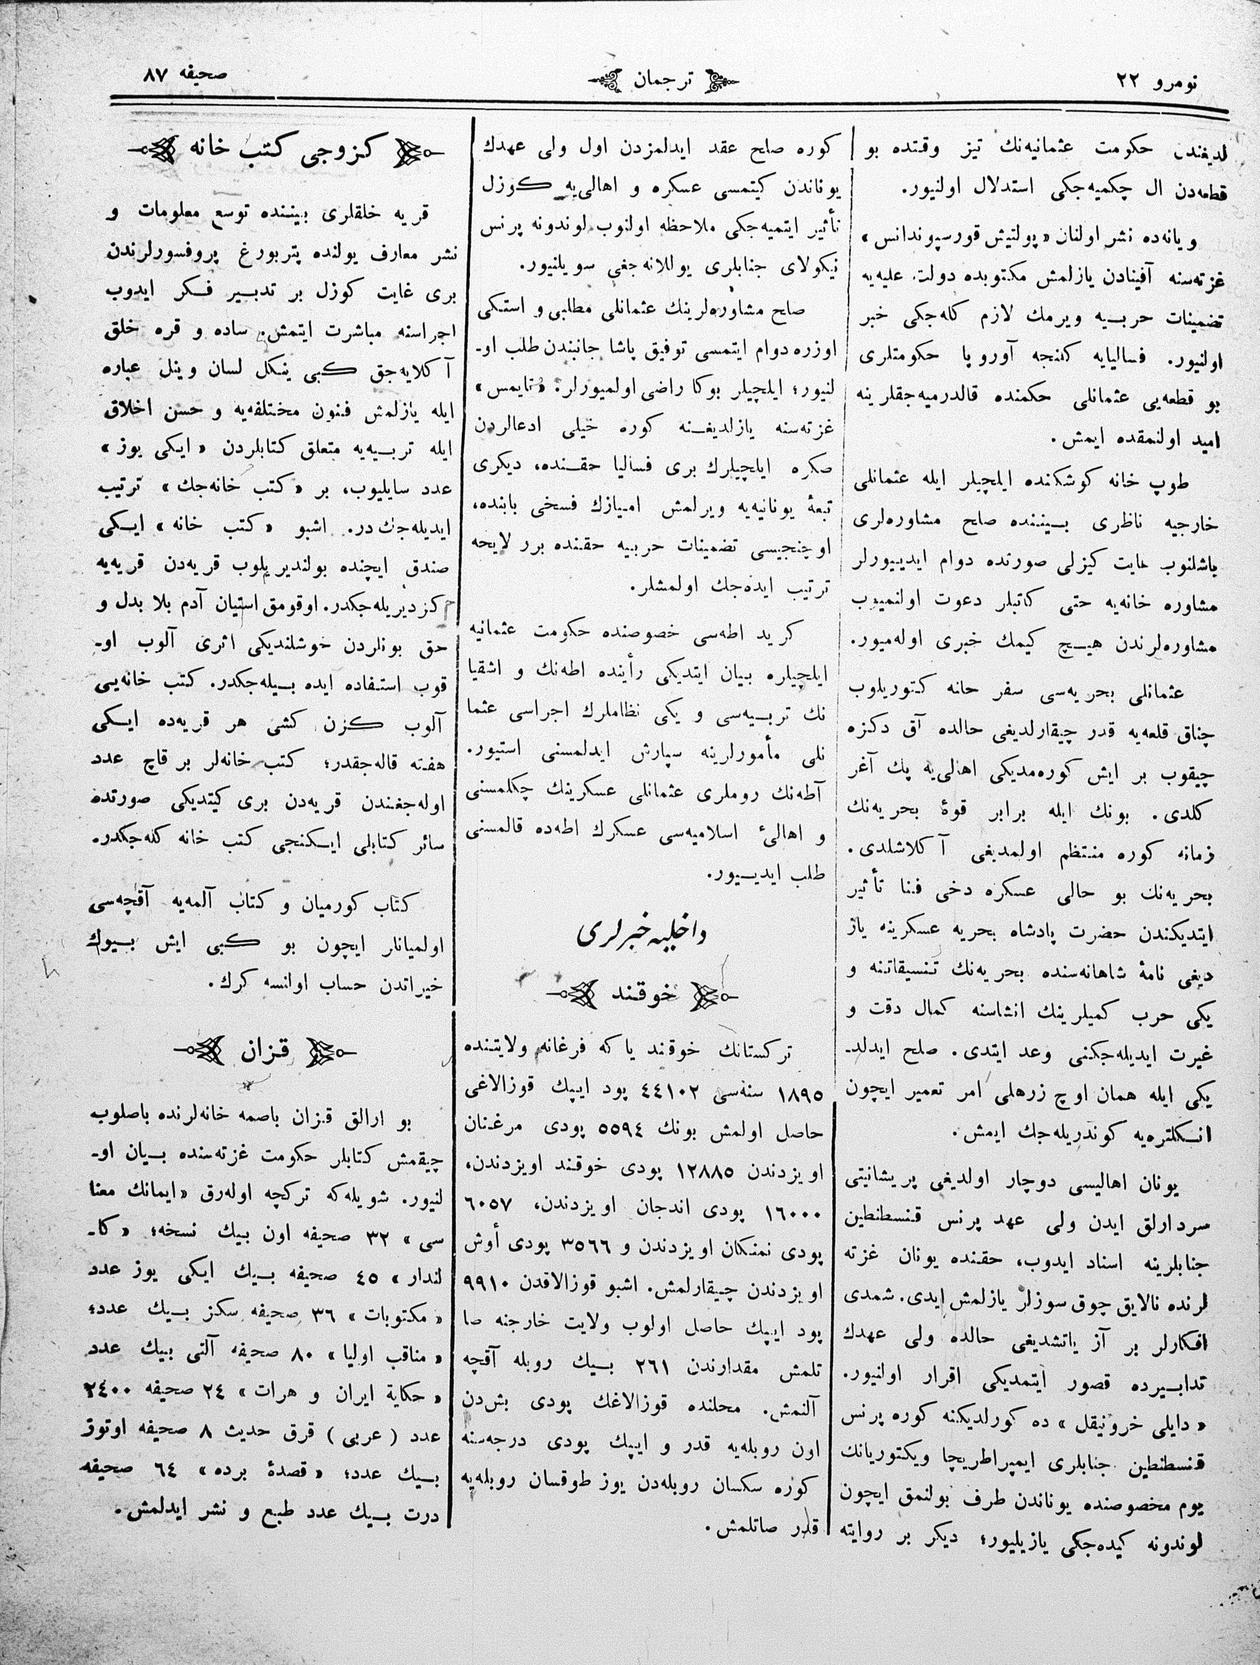 نومرو ٢٢
ترجمان
صحیفه ٨٧
لدیغندن حکومت عثمانیه‌نك تیز وقتده بو
قطعه‌دن ال چکمیه‌جکی استدلال اولنیور.
ویانه‌ده نشر اولنان «پولتیش قورسپوندانس»
غزته‌سنه آفینادن یازلمش مکتوبده دولت علیه‌یه
تضمینات حربیه ویرمك لازم کله‌جکی خبر
اولنیور. فسالیایه کلنجه آوروپا حکومتلری
بو قطعه‌یی عثمانلی حکمنده قالدرمیه‌جقلرینه
امید اولنمقده ایمش.
طوپ خانه کوشکنده ایلچیلر ایله عثمانلی
خارجیه ناظری بیننده صلح مشاوره‌لری
باشلنوب غایت کیزلی صورتده دوام ایدییورلر
مشاوره خانه‌یه حتی کاتبلر دعوت اولنمیوب
مشاوره‌لرندن هیچ کیمك خبری اوله‌میور.
عثمانلی بحریه‌سی سفر حانه کتوریلوب
چناق قلعه‌یه قدر چیقارلدیغی حالده آق دکزه
چیقوب بر ایش کوره‌مدیکی اهالی‌یه پك آغر
کلدی. بونك ایله برابر قوهٔ بحریه‌نك
زمانه کوره منتظم اولمدیغی آکلاشلدی.
بحریه‌نك بو حالی عسکره دخی فنا تأثیر
ایتدیکندن حضرت پادشاه بحریه عسکرینه یاز
دیغی نامهٔ شاهانه‌سنده بحریه‌نك تنسیقاتنه و
یکی حرب کمیلرینك انشاسنه کمال دقت و
غیرت ایدیله‌جکنی وعد ایتدی. صلح ایدلد۔
یکی ایله همان اوچ زرهلی امر تعمیر ایچون
انکلتره‌یه کوندریله‌جك ایمش.
یونان اهالیسی دوچار اولدیغی پریشانیتی
سردارلق ایدن ولی عهد پرنس قنسطنطین
جنابلرینه اسناد ایدوب، حقنده یونان غزته
لرنده نالایق چوق سوزلر یازلمش ایدی. شمدی
افکارلر بر آز یاتشدیغی حالده ولی عهدك
تدابیرده قصور ایتمدیکی اقرار اولنیور.
«دایلی خرونیقل» ده کورلدیکنه کوره پرنس
قنسطنطین جنابلری ایمپراطریچا ویکتوریانك
یوم مخصوصنده یوناندن طرف بولنمق ایچون
لوندونه کیده‌جکی یازیلیور؛ دیکر بر روایته
کوره صلح عقد ایدلمزدن اول ولی عهدك
یوناندن کیتمسی عسکره و اهالی‌یه کوزل
تأثیر ایتمیه‌جکی ملاحظه اولنوب لوندونه پرنس
نیکولای جنابلری یوللانه‌جغی سویلنیور.
صلح مشاوره‌لرینك عثمانلی مطلبی و استکی
اوزره دوام ایتمسی توفیق پاشا جانبندن طلب او۔
لنیور؛ ایلچیلر بوکا راضی اولمیورلر. «تایمس»
غزته‌سنه یازلدیغنه کوره خیلی ادعالردن
صکره ایلچیلرك بری فسالیا حقنده، دیکری
تبعهٔ یونانیه‌یه ویرلمش امیازك فسخی بابنده،
اوچنجیسی تضمینات حربیه حقنده برر لایحه
ترتیب ایده‌جك اولمشلر.
کرید اطه‌سی خصوصنده حکومت عثمانیه
ایلچیلره بیان ایتدیکی رأینده اطه‌نك و اشقیا
نك تربیه‌سی و یکی نظاملرك اجراسی عثما
نلی مأمورلرینه سپارش ایدلمسنی استیور.
آطه‌نك روملری عثمانلی عسکرینك چکلمسنی
و اهالیٔ اسلامیه‌سی عسکرك اطه‌ده قالمسنی
طلب ایدییور.
داخلیه خبرلری
خوقند
ترکستانك خوقند یا که فرغانه ولایتنده
١٨٩٥ سنه‌سی ٤٤١٠٢ پود ایپك قوزالاغی
حاصل اولمش بونك ٥٥٩٤ پودی مرغنان
اویزدندن ١٢٨٨٥ پودی خوقند اویزدندن،
١٦٠٠٠ پودی اندجان اویزدندن، ٦٠٥٧
پودی نمنکان اویزدندن و ٣٥٦٦ پودی أوش
اویزدندن چیقارلمش. اشبو قوزالاقدن ٩٩١٠
پود ایپك حاصل اولوب ولایت خارجنه صا
تلمش مقدارندن ٢٦١ بیك روبله آقچه
آلنمش. محلنده قوزالاغك پودی بش‌دن
اون روبله‌یه قدر و ایپك پودی درجه‌سنه
کوره سکسان روبله‌دن یوز طوقسان روبله‌یه
قدر صاتلمش.
کزوجی کتب خانه
قریه خلقلری بیننده توسع معلومات و
نشر معارف یولنده پتربورغ پروفسورلرندن
بری غایت کوزل بر تدبیر فکر ایدوب
اجراسنه مباشرت ایتمش. ساده و قره خلق
آکلایه‌جق کبی ینکل لسان وینل عباره
ایله یازلمش فنون مختلفه‌یه و حسن اخلاق
ایله تربیه‌یه متعلق کتابلردن «ایکی یوز»
عدد سایلیوب، بر «کتب خانه‌جك» ترتیب
ایدیله‌جك‌در. اشبو «کتب خانه» ایکی
صندق ایچنده بولندیریلوب قریه‌دن قریه‌یه
کزدیریله‌جکدر. اوقومق استیان آدم بلا بدل و
حق بونلردن خوشلندیکی اثری آلوب او۔
قوب استفاده ایده بیله‌جکدر. کتب خانه‌یی
آلوب کزن کشی هر قریه‌ده ایکی
هفته قاله‌جقدر؛ کتب خانه‌لر بر قاچ عدد
اوله‌جغندن قریه‌دن بری کیتدیکی صورتده
سائر کتابلی ایکنجی کتب خانه کله‌جکدر.
کتاب کورمیان و کتاب آلمه‌یه آقچه‌سی
اولمیانلر ایچون بو کبی ایش بیوك
خیراتدن حساب اولنسه کرك.
قزان
بو ارالق قزان باصمه خانه‌لرنده باصلوب
چیقمش کتابلر حکومت غزته‌سنده بیان او۔
لنیور. شویله‌که ترکچه اوله‌رق «ایمانك معنا
سی» ٣٢ صحیفه اون بیك نسخه؛ «کا۔
لندار» ٤٥ صحیفه بیك ایکی یوز عدد
«مکتوبات» ٣٦ صحیفه سکز بیك عدد؛
«مناقب اولیا» ٨٠ صحیفه آلتی بیك عدد
«حکایة ایران و هرات» ٢٤ صحیفه ٢٤٠٠
عدد (عربی) قرق حدیث ٨ صحیفه اوتوز
بیك عدد؛ «قصدهٔ برده» ٦٤ صحیفه
درت بیك عدد طبع و نشر ایدلمش.